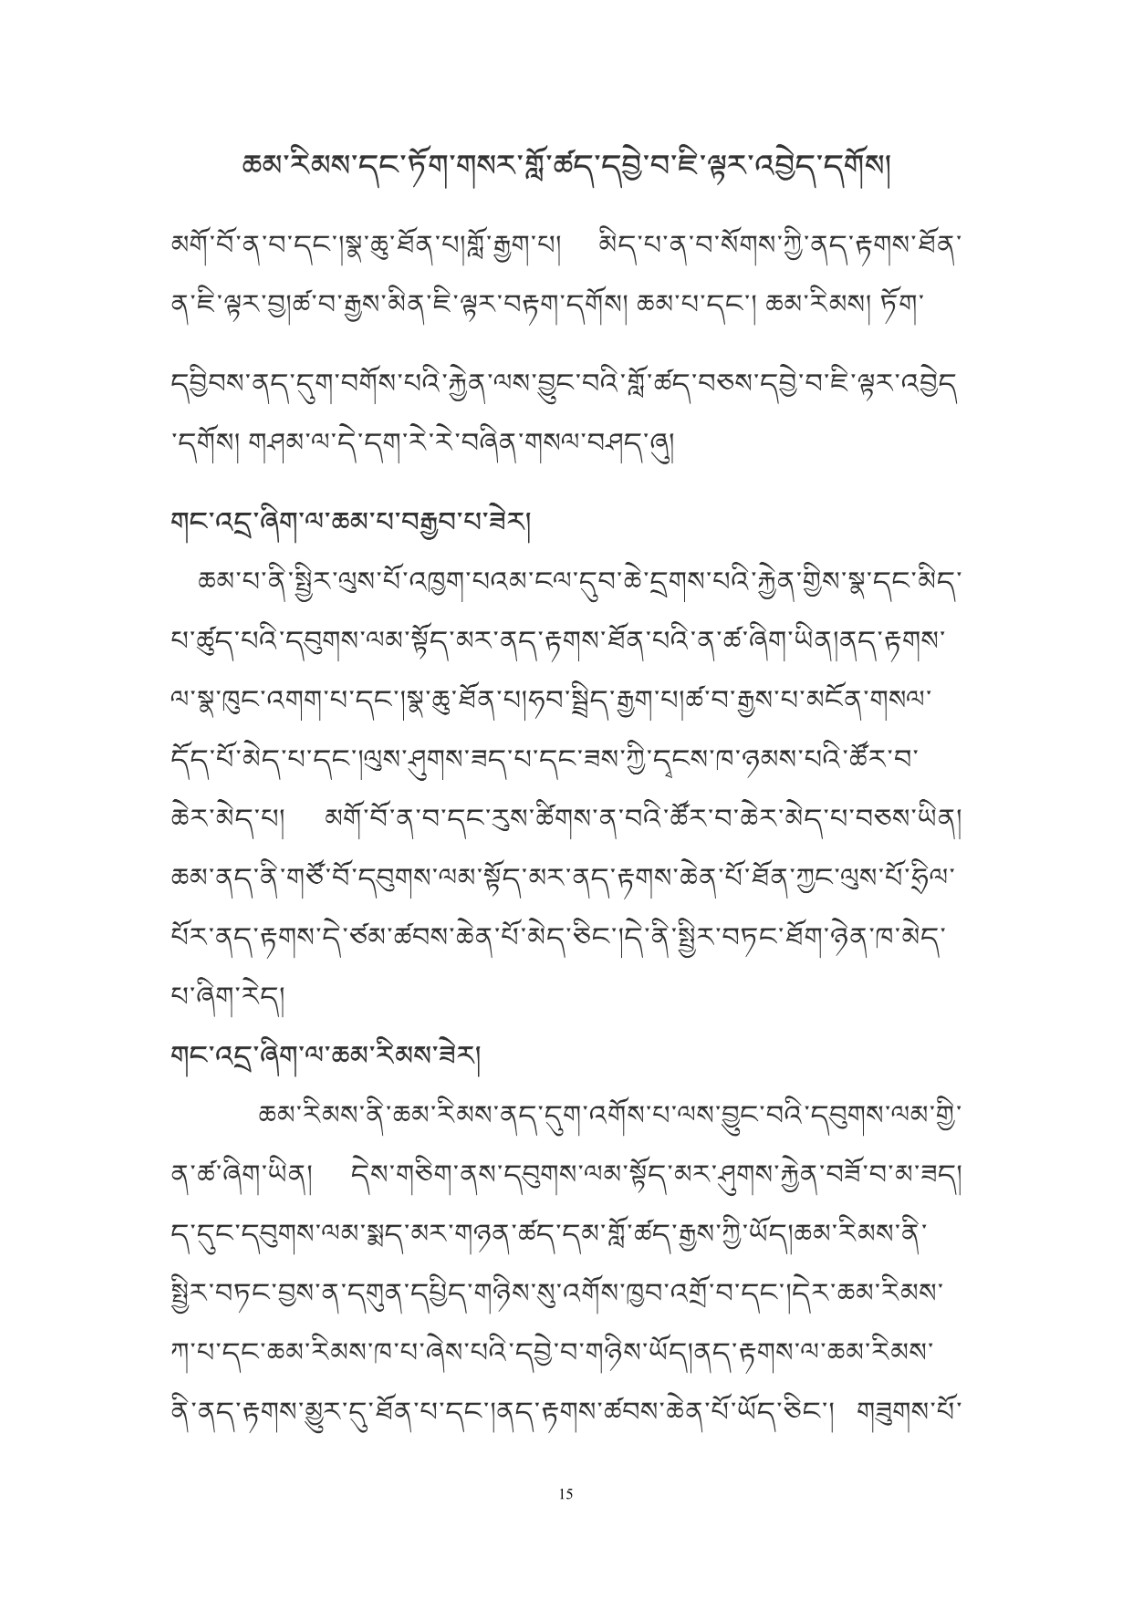 ཆམ་རིམས་དང་ཏོག་གསར་གློ་ཚད་དབྱེ་བ་ཇི་ལྟར་འབྱེད་དགོས།
མགོ་བོ་ན་བ་དང་།སྣ་ཆུ་ཐོན་པ།གློ་རྒྱག་པ།  མིད་པ་ན་བ་སོགས་ཀྱི་ནད་རྟགས་ཐོན་
ན་ཇི་ལྟར་བྱ།ཚ་བ་རྒྱས་མིན་ཇི་ལྟར་བརྟག་དགོས། ཆམ་པ་དང་། ཆམ་རིམས། ཏོག་
དབྱིབས་ནད་དུག་བགོས་པའི་རྐྱེན་ལས་བྱུང་བའི་གློ་ཚད་བཅས་དབྱེ་བ་ཇི་ལྟར་འབྱེད
་དགོས། གཤམ་ལ་དེ་དག་རེ་རེ་བཞིན་གསལ་བཤད་ཞུ།
གང་འདྲ་ཞིག་ལ་ཆམ་པ་བརྒྱབ་པ་ཟེར།
ཆམ་པ་ནི་སྤྱིར་ལུས་པོ་འཁྱག་པའམ་ངལ་དུབ་ཆེ་དྲགས་པའི་རྐྱེན་གྱིས་སྣ་དང་མིད་
པ་ཚུད་པའི་དབུགས་ལམ་སྟོད་མར་ནད་རྟགས་ཐོན་པའི་ན་ཚ་ཞིག་ཡིན།ནད་རྟགས་
ལ་སྣ་ཁུང་འགག་པ་དང་།སྣ་ཆུ་ཐོན་པ།ཧབ་སྦྲིད་རྒྱག་པ།ཚ་བ་རྒྱས་པ་མངོན་གསལ་
དོད་པོ་མེད་པ་དང་།ལུས་ཤུགས་ཟད་པ་དང་ཟས་ཀྱི་དྭངས་ཁ་ཉམས་པའི་ཚོར་བ་
ཆེར་མེད་པ།  མགོ་བོ་ན་བ་དང་རུས་ཚིགས་ན་བའི་ཚོར་བ་ཆེར་མེད་པ་བཅས་ཡིན།
ཆམ་ནད་ནི་གཙོ་བོ་དབུགས་ལམ་སྟོད་མར་ནད་རྟགས་ཆེན་པོ་ཐོན་ཀྱང་ལུས་པོ་ཧྲིལ་
པོར་ནད་རྟགས་དེ་ཙམ་ཚབས་ཆེན་པོ་མེད་ཅིང་།དེ་ནི་སྤྱིར་བཏང་ཐོག་ཉེན་ཁ་མེད་
པ་ཞིག་རེད།
གང་འདྲ་ཞིག་ལ་ཆམ་རིམས་ཟེར།
ཆམ་རིམས་ནི་ཆམ་རིམས་ནད་དུག་འགོས་པ་ལས་བྱུང་བའི་དབུགས་ལམ་གྱི་
ན་ཚ་ཞིག་ཡིན།  དེས་གཅིག་ནས་དབུགས་ལམ་སྟོད་མར་ཤུགས་རྐྱེན་བཟོ་བ་མ་ཟད།
ད་དུང་དབུགས་ལམ་སྨད་མར་གཉན་ཚད་དམ་གློ་ཚད་རྒྱས་ཀྱི་ཡོད།ཆམ་རིམས་ནི་
སྤྱིར་བཏང་བྱས་ན་དགུན་དཔྱིད་གཉིས་སུ་འགོས་ཁྱབ་འགྲོ་བ་དང་།དེར་ཆམ་རིམས་
ཀ་པ་དང་ཆམ་རིམས་ཁ་པ་ཞེས་པའི་དབྱེ་བ་གཉིས་ཡོད།ནད་རྟགས་ལ་ཆམ་རིམས་
ནི་ནད་རྟགས་མྱུར་དུ་ཐོན་པ་དང་།ནད་རྟགས་ཚབས་ཆེན་པོ་ཡོད་ཅིང་།  གཟུགས་པོ་
15